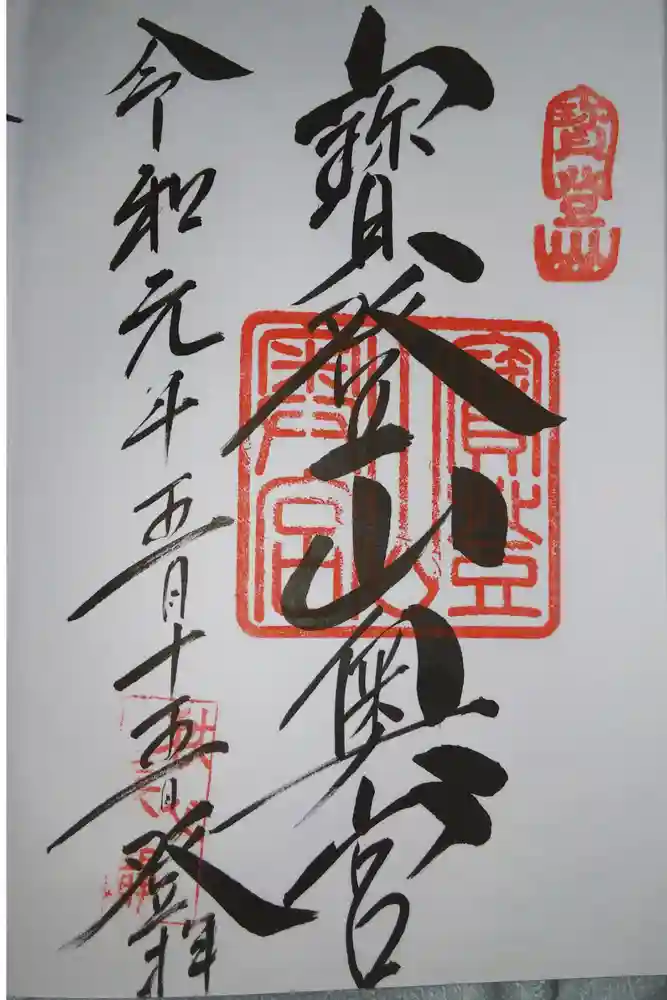 寶登山
寶登山奥宮
寶登山奥宮
令和元年五月十五日登拝